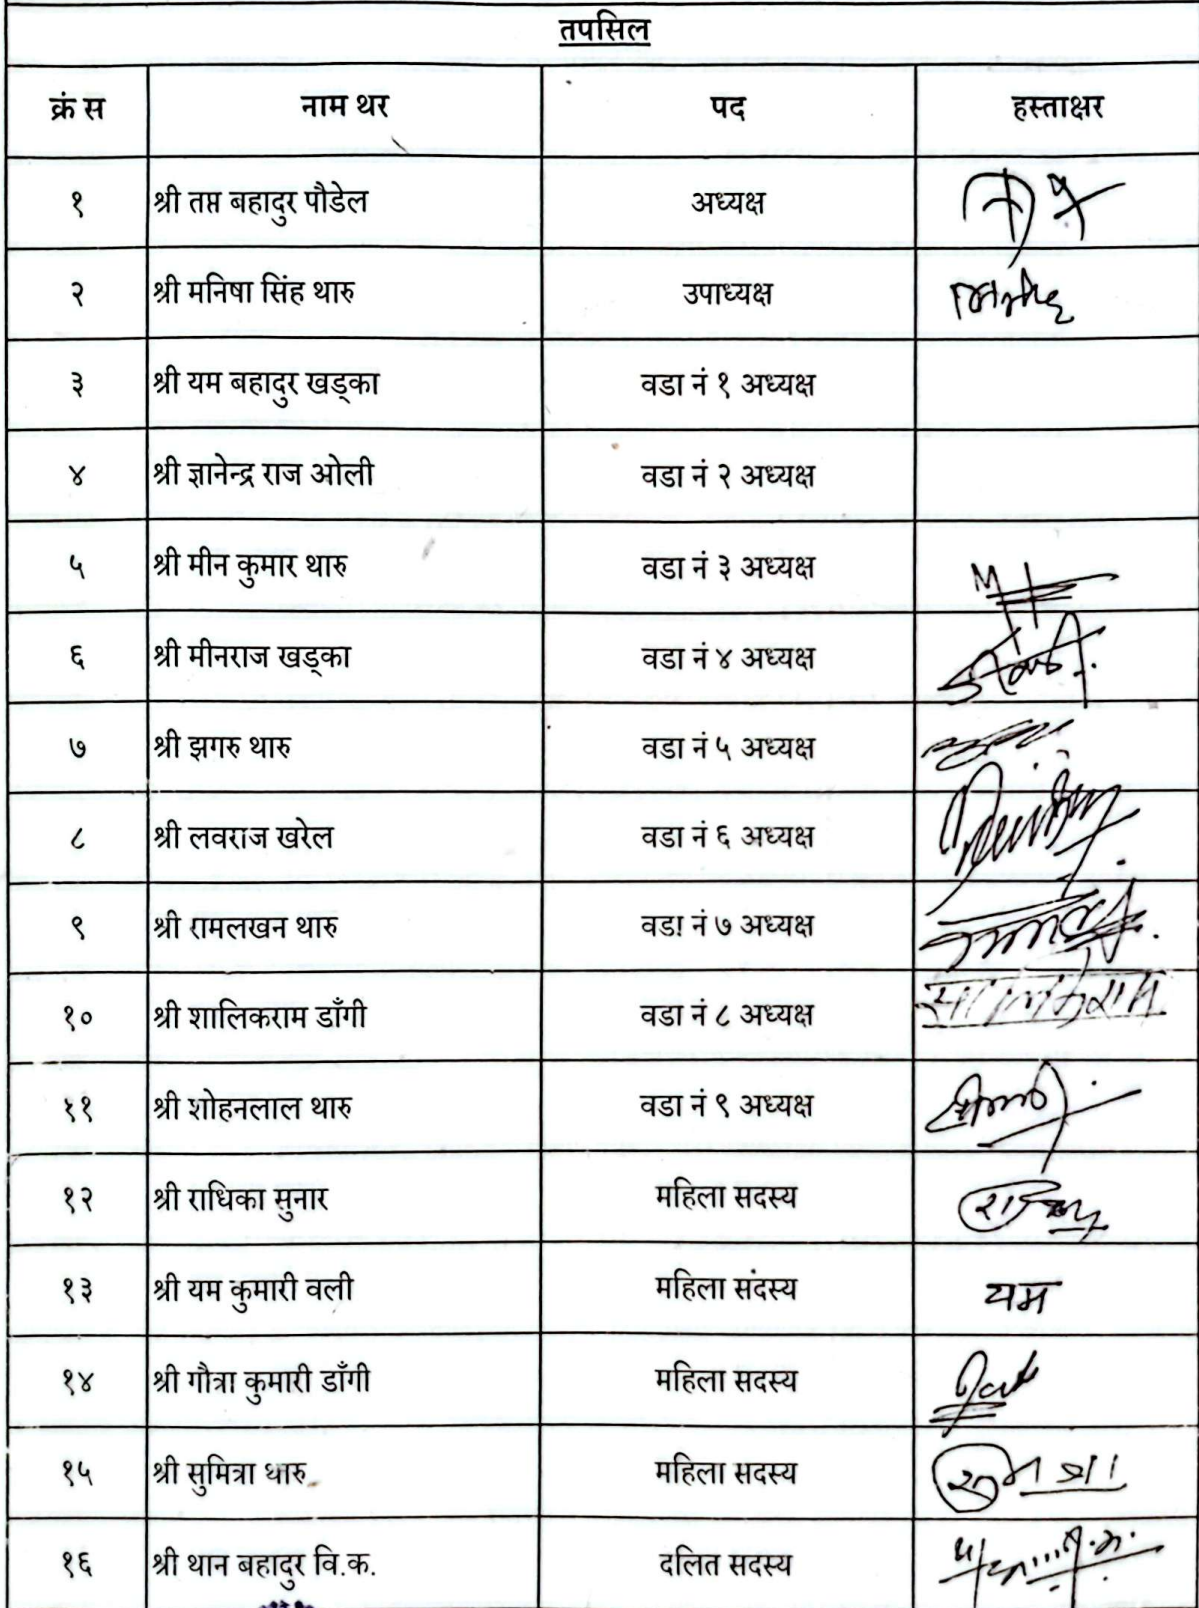 तपसिल
क्रं स नाम थर पद हस्ताक्षर
१ श्री तप्त बहादुर पौडेल अध्यक्ष
२ श्री मनिषा सिंह थारु उपाध्यक्ष
३ श्री यम बहादुर खड्का वडा नं १ अध्यक्ष
४ श्री ज्ञानेन्द्र राज ओली वडा नं २ अध्यक्ष
५ श्री मीन कुमार थारु वडा नं ३ अध्यक्ष
६ श्री मीनराज खड्का वडा नं ४ अध्यक्ष
७ श्री झगरु थारु वडा नं ५ अध्यक्ष
८ श्री लवराज खरेल वडा नं ६ अध्यक्ष
९ श्री रामलखन थारु वडा नं ७ अध्यक्ष
१० श्री शालिकराम डाँगी वडा नं ८ अध्यक्ष
११ श्री शोहनलाल थारु वडा नं ९ अध्यक्ष
१२ श्री राधिका सुनार महिला सदस्य
१३ श्री यम कुमारी वली महिला सदस्य यम
१४ श्री गौत्रा कुमारी डाँगी महिला सदस्य
१५ श्री सुमित्रा थारु महिला सदस्य
१६ श्री थान बहादुर वि.क. दलित सदस्य